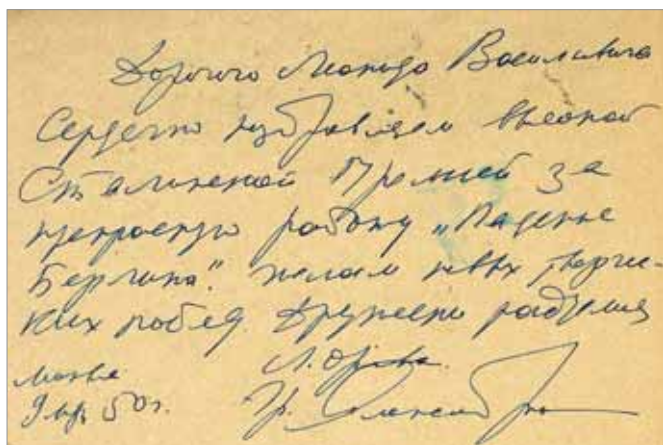 Дорогого Леонида Васильевича
Сердечно поздравляем высокой
Сталинской Премией за
прекрасную работу „Падение
Берлина". Желаем новых творчес-
ких побед Дружески
Москва Л. Орлова
9 мар 50 г. Гр. Александров